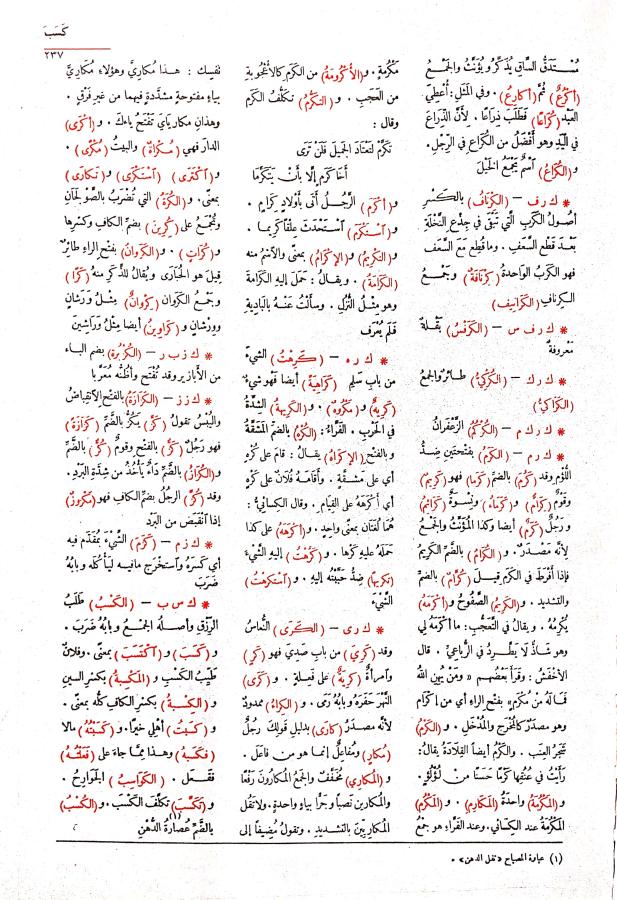 كَسَبَ
٢٣٧
مُسْتَدَقُّ السَّاقِ يُذَكَّرُ وَيُؤَنَّثُ والجَمْعُ
(أَكْرُعٌ) ثُمَّ (أَكَارِعُ) . وفي المَثَلِ: أُعْطِيَ
العَبْدُ (كُرَاعًا) فَطَلَبَ ذِرَاعًا . لِأَنَّ الذِّرَاعَ
في اليَدِ وهو أَفْضَلُ من الكُرَاعِ في الرِّجْلِ.
و(الكُرَاعُ) آسْمٌ يَجْمَعُ الخَيْلَ
* ك ر ف – (الكِرْنَافُ) بِالكَسْرِ
أُصُولُ الكَرَبِ الَّتِي تَبْقَى في جِذْعِ النَّخْلَةِ
بَعْدَ قَطْعِ السَّعَفِ . وما قُطِعَ مَعَ السَّعَفِ
فهو الكَرَبُ الوَاحِدَةُ (كِرْنَافَةٌ) وَجَمْعُ
الكِرنافِ (الكَرَانِيف)
* ك ر ف س – (الكَرَفْسُ) بَقْلَةٌ
مَعْرُوفَةٌ
* ك ر ك – (الكُرْكِيُّ) طَائِرٌ والجمعُ
(الكَرَاكِيُّ)
* ك ر ك م – (الكُرْكُمُ) الزَّعْفَرَانُ
* ك ر م – (الكَرَمُ) بفتحتين ضِدُّ
اللُّؤْمِ وقد (كَرُمَ) بالضم (كَرَمًا) فهو (كَرِيمٌ)
وقَوْمٌ (كِرَامٌ) و(كُرَمَاءُ) ونِسْوَةٌ (كَرَائِمُ)
ورَجُلٌ (كَرَمٌ) أيضا وكذا المُؤَنَّثُ والجَمْعُ
لِأَنَّهُ مَصْدَرٌ. و(الكُرَامُ) بالضَّمِّ الكَرِيمُ
فإذا أَفْرَطَ في الكَرَمِ قِيلَ (كُرَّامٌ) بالضمِّ
والتشديد . و(الكَرِيمُ) الصَّفُوحُ و(أَكْرَمَهُ)
يُكْرِمُهُ . ويقال في التَّعَجُّبِ: ما أَكْرَمَهُ لِي
وهو شَاذٌّ لَا يَطَّرِدُ في الرُّبَاعِيِّ . قال
الأخْفَشُ : وقَرَأَ بَعْضُهُم «ومَنْ يُهِنِ اللهُ
فَمَا لَهُ مِنْ مُكْرَمٍ» بفتح الراءِ أي مِن إِكْرَامٍ
وهو مصدَرٌ كالمُخْرَجِ والمُدْخَلِ . و(الكَرْمُ)
شَجَرُ العِنَبِ . والكَرْمُ أيضًا القِلَادَةُ يقالُ:
رَأَيْتُ في عُنُقِها كَرْمًا حَسَنًا من لُؤْلُؤٍ.
و(المَكْرُمَةُ) وَاحِدَةُ (المَكَارِمِ) . و(المَكْرُمُ)
المَكْرُمَةُ عند الكِسَائي. وعند الفَرَّاءِ هو جَمْعُ
مَكْرُمَةٍ. و(الأُكْرُومَةُ) من الكَرَمِ كالأُعْجُوبَةِ
من العَجَبِ . و(التَكَرُّمُ) تَكَلُّفُ الكَرَمِ
وقال :
تَكَرَّمْ لِتَعْتَادَ الجَمِيلَ فَلَنْ تَرَى
أَخَا كَرَمٍ إلَّا بأنْ يَتَكَرَّمَا
و(أَكْرَمَ) الرَّجُلُ أَتَى بأَوْلَادٍ كِرَامٍ .
و(آسْتَكْرَمَ) آسْتَحْدَثَ عِلْقًا كَرِيمًا .
و(التَكْرِيمُ) و(الإِكْرَامُ) بمعنًى والآسْمُ منه
(الكَرَامَةُ) . ويقال: حَمَلَ إليهِ الكَرَامَةَ
وهو مِثْلُ النُّزُلِ . وسألتُ عَنْهُ بالبَادِيةِ
فَلَمْ يُعْرَف
* ك ر ه – (كَرِهْتُ) الشيءَ
من باب سَلِمَ (كَرَاهِيَةً) أيضا فهو شيءٌ
(كَرِيهٌ) و(مَكْرُوهٌ) . و(الكَرِيهَةُ) الشِّدَّةُ
في الحَرْبِ . الفَرَّاءُ: (الكُرْهُ) بالضمِّ المَشَقَّةُ
وبالفتح (الإِكْرَاهُ) يقالُ : قَامَ على كُرْهٍ
أي على مَشَقَّةٍ . وأقَامَهُ فُلَانٌ على كَرْهٍ
أي أَكْرَهَهُ على القِيَامِ . وقال الكِسَائِيُّ :
هُمَا لُغَتَانِ بمعنًى واحِدٍ . و(أَكْرَهَهُ) على كذا
حَمَلَهُ عليهِ كَرْهًا . و(كَرَّهْتُ) إليه الشَّيْءَ
(تَكْرِيهًا) ضِدُّ حَبَّبْتُه إليهِ . و(آسْتَكْرَهْتُ)
الشَّيْءَ
* ك ر ى – (الكَرَى) النُّعَاسُ
وقد (كَرِيَ) من باب صَدِيَ فهو (كَرٍ)
وآمرأَةٌ (كَرِيَةٌ) على فَعِلَةٍ . و(كَرَى)
النَّهْرَ حَفَرَهُ وبابُهُ رَمَى . و(الكِرَاءُ) ممدودٌ
لأَنَّهُ مصدَرُ (كَارَى) بدليلِ قَولِكَ رَجُلٌ
(مُكَارٍ) ومُفَاعِلٌ إنَّما هو من فاعَلَ .
و(المُكَارِي) مُخَفَّفٌ والجمعُ المُكَارُونَ رَفْعًا
والمُكَارِينَ نَصْبًا وجَرًّا بياءٍ واحدةٍ. ولا تَقُلِ
المُكَارِيِّينَ بالتشديدِ . وتقولُ مُضِيفًا إلى
نَفْسِكَ : هذا مُكَارِيَّ وهؤلاءِ مُكَارِيَّ
بياءٍ مفتوحةٍ مشدَّدةٍ فيهما من غيرِ فَرْقٍ .
وهذانِ مُكَارِيَايَ تَفْتَحُ يَاءَكَ . و(أَكْرَى)
الدارَ فهي (مُكْرَاةٌ) والبيتُ (مُكْرًى) .
و(آكْتَرَى) و(آسْتَكْرَى) و(تَكَارَى)
بمعنًى. و(الكُرَةُ) التي تُضْرَبُ بِالصَّوْلَجَانِ
وتُجْمَعُ على (كُرِينَ) بضم الكافِ وكسرِها
و(كُرَاتٍ) . و(الكَرَوَانُ) بفتحِ الراءِ طَائِرٌ
قِيلَ هو الحُبَارَى ويُقالُ للذَّكَرِ منه (كَرًا)
وجمعُ الكَرَوَانِ (كِرْوَانٌ) مِثْلُ وَرَشَانٍ
ووِرْشَانٍ و(كَرَاوِينُ) أيضا مِثْلُ وَرَاشِينَ
* ك ز ب ر – (الكُزْبُرَةُ) بضم الباء
من الأَبَازِيرِ وقد تُفْتَحُ وأظُنُّهُ مُعَرَّبًا
* ك ز ز – (الكَزَازَةُ) بالفتح الآنقِبَاضُ
واليُبْسُ تقولُ (كَزَّ) يَكُزُّ بالضَّمِّ (كَزَازَةً)
فهو رَجُلٌ (كَزٌّ) بالفتحِ وقومٌ (كُزٌّ) بالضَّمِّ
و(الكُزَازُ) بالضَّمِّ دَاءٌ يَأْخُذُ من شِدَّةِ البَرْدِ.
وقد (كُزَّ) الرجُلُ بضم الكافِ فهو (مَكْزُوزٌ)
إذا آنْقَبَضَ من البَرْدِ
* ك ز م – (كَزَمَ) الشَّيْءَ بمُقَدَّمِ فيه
أي كَسَرَهُ وآستَخْرَجَ مافيه لِيَأكُلَه وبابُهُ
ضَرَبَ
* ك س ب – (الكَسْبُ) طَلَبُ
الرِّزْقِ وأصلُهُ الجَمْعُ وبابُهُ ضَرَبَ .
و(كَسَبَ) و(آكْتَسَبَ) بمعنًى. وفلانٌ
طَيِّبُ الكَسْبِ و(المَكْسِبَةِ) بكَسْرِ السينِ
و(الكِسْبَةِ) بكَسْرِ الكافِ كلُّه بمعنًى .
و(كَسَبْتُ) أهلِي خَيْرًا. و(كَسَبْتُهُ) مالا
(فَكَسَبَهُ) وهذا ممَّا جاءَ على (فَعَلْتُهُ)
فَفَعَلَ . (الكَوَاسِبُ) الجَوَارِحُ .
و(تَكَسَّبَ) تكلَّفَ الكَسْبَ . و(الكُسْبُ)
بالضَّمِّ عُصَارَةُ الدُّهْنِ (١)
(١) عبارة المصباح «ثفل الدهن» .